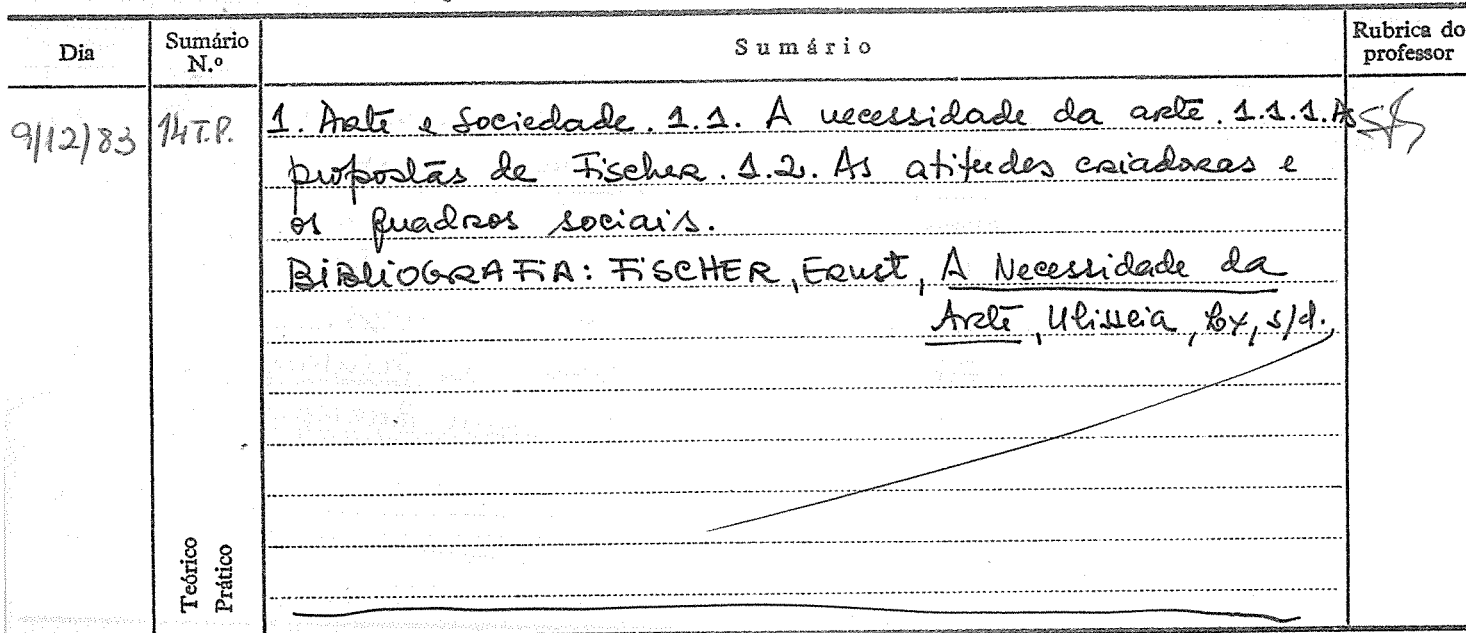 Dia
Sumário N.º
Sumário
Rubrica do professor
9/12/83
14 T.P.
1. Arte e Sociedade. 1.1. A necessidade da arte. 1.1.1. As
propostas de Fischer. 1.2. As atitudes criadoras e
os quadros sociais.
BIBLIOGRAFIA: FISCHER, Ernst, A Necessidade da
Arte, Ulisseia, Lx, s/d.,
Teórico
Prático